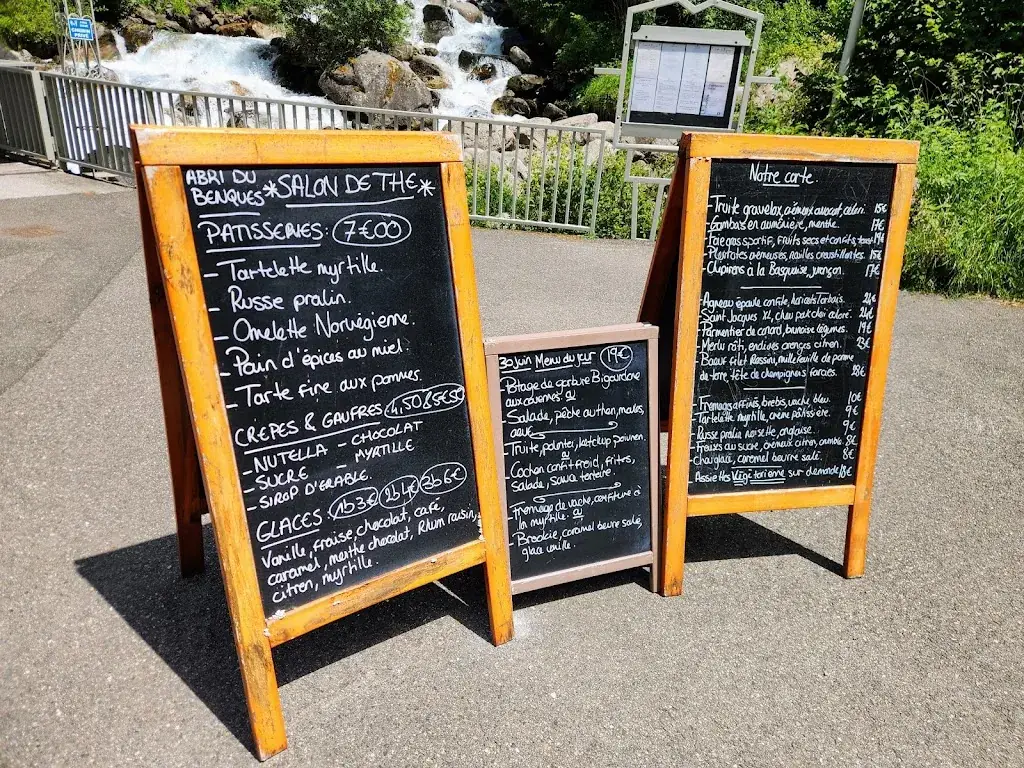 ABRI DU
BENQUES
*SALON DE THÉ*
PATISSERIES. 7€00
- Tartelette myrtille.
- Russe pralin.
- Omelette Norvégienne.
- Pain d'épices au miel.
- Tarte fine aux pommes.
CRÊPES & GAUFRES
- NUTELLA - CHOCOLAT
- SUCRE - MYRTILLE
- SIROP D'ERABLE.
GLACES. 1b3€ 2b4€ 3b6€
Vanille, fraise, chocolat, café,
caramel, menthe chocolat, Rhum raisin,
citron, myrtille.
30 juin Menu du jour 19€
- Potage de garbure Bigourdane
ou
- Salade, pêche au thon,
- Truite,
ou
- Cochon confit froid, frites,
Salade, sauce tartare.
- Fromage de vache, confiture à
la myrtille. ou
- Brookie, caramel beurre salé,
glace vanille.
Notre carte.
- Truite gravelax, crémeux avocat, céleri. 15€
- Gambas en aumônière, menthe. 17€
- Foie gras sportif, fruits secs et confits, toast 19€
- croustillantes. 15€
- Chipirons à la Basquaise, 17€
- Agneau épaule confite, haricots Tarbais. 24€
- Saint Jacques XL, chou pak choi 24€
- Parmentier de canard, légumes. 19€
- Merlu rôti, endives oranges citron. 23€
- Boeuf filet Rossini, millefeuille de pomme
de terre, tête de champignons farcies. 28€
- Fromages affinés, brebis, vache, bleu. 10€
- Tartelette myrtille, crème pâtissière. 9€
- Russe pralin noisette, anglaise. 9€
- Fraises au sucre, crémeux citron, 8€
- Chou glacé, caramel beurre salé. 8€
- Assiettes Végétarienne sur demande